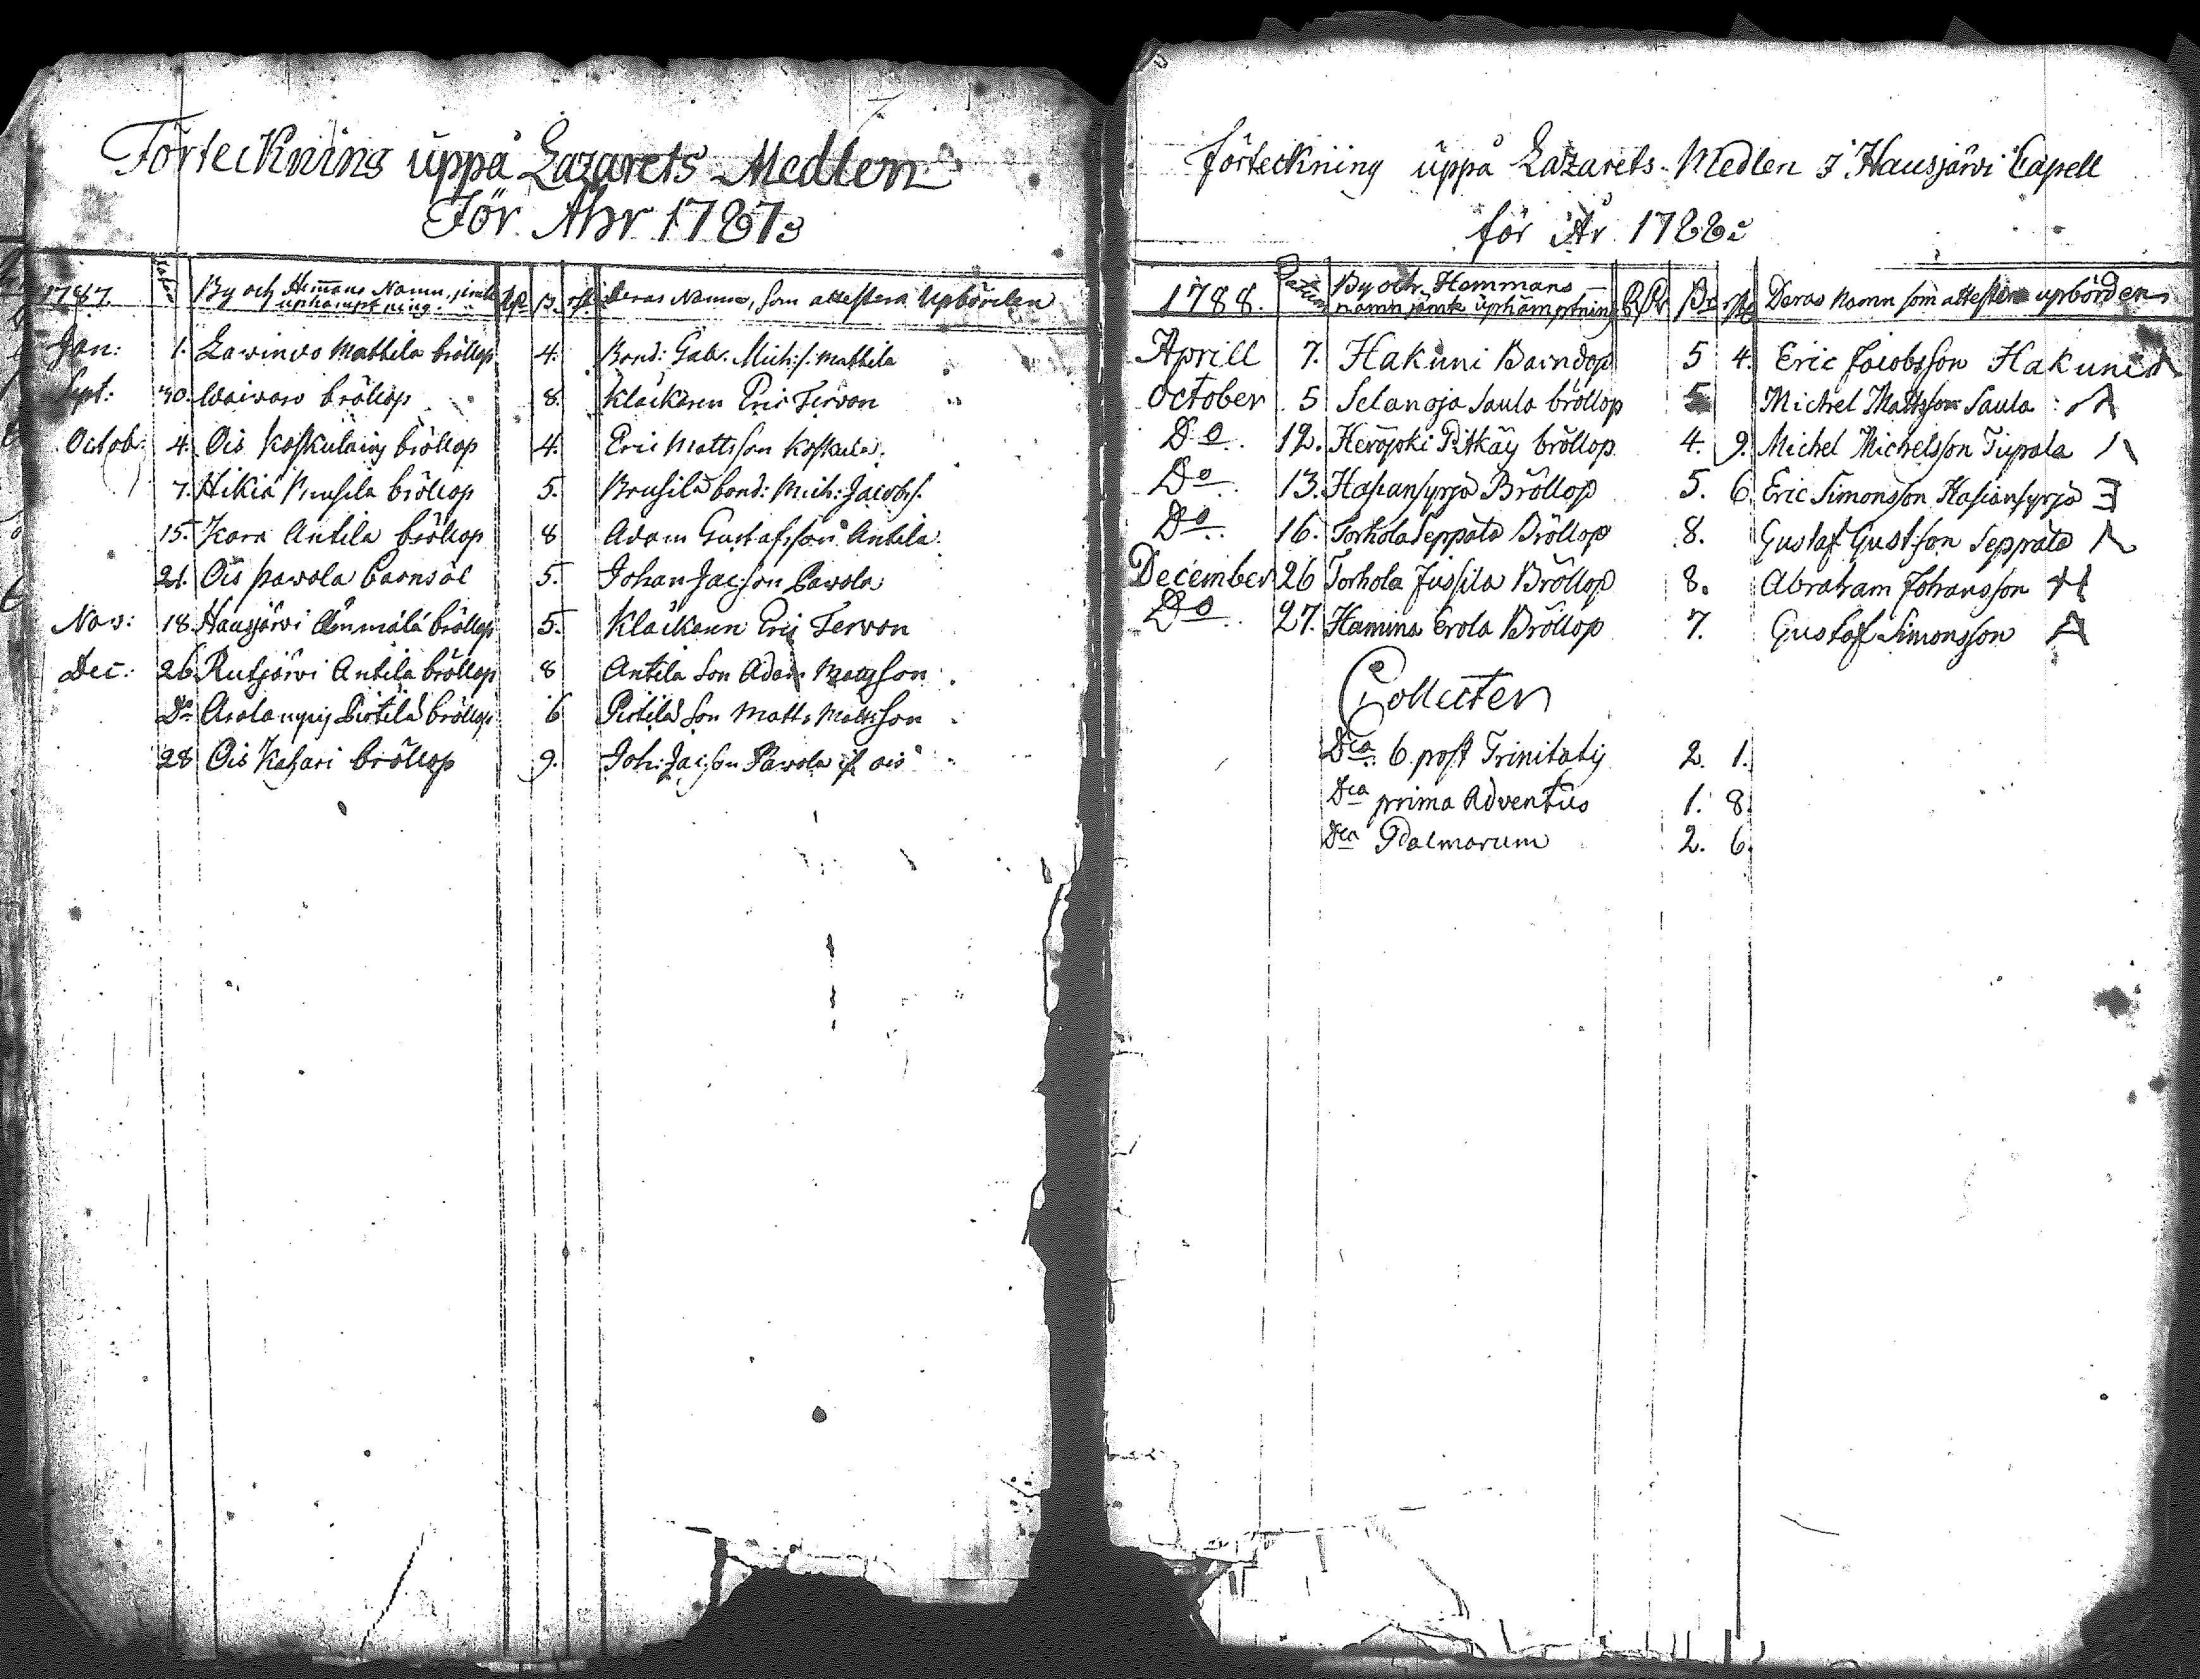 Förteckning uppå Lazarets Medlen
För Åhr 1787
1787. Datum By och Hemmans Namn, jemte uphämptning. Rdr ß. rst. Deras Namn, som attestera Upbörden
Jan: 1. Lawinno Mattila bröllop 4. Bond: Gab. Mich:s. Mattila
Sept: 30. Waiwaro bröllop 8. Kläckaren Eric Tervon
Octob: 4. Ois Koskulainy bröllop 4. Eric Mattsson Koskula.
7. Hikiä Prusila bröllop 5. Brusila bond: Mich: Jacobs.
15. Kara Antila bröllop 8 Adam Gustafsson Antila.
21. Ois Pavola barnsöl 5. Johan Jacsson Pavola
Nov: 18. Hausjärvi Ånmälä bröllop 5. Kläckaren Eric Tervon
Dec: 26 Rutjärvi Antila bröllop 8 Antila Son Adam Mattsson
Do Pirtilä bröllop 6 Pirtilä Son Matts Mattsson
28 Ois Kahari bröllop 9. Joh: Jacsson Pavola if. ois
Förteckning uppå Lazarets Medlen i Hausjärvi Capell
för År 1788
1788. Datum By och Hemmans namn jämte uphämptning Rdr ß rst Deras Namn som attestera upbörden
Aprill 7. Hakuni Barndop 5 4. Eric Jacobsson Hakuni
October 5 Selänoja Saula bröllop 5 Michel Mattsson Saula
Do 12. Heröjoki Pitkäy bröllop 4. 9. Michel Michelsson Tupala
Do 13. Hasiansyrjä Bröllop 5. 6. Eric Simonsson Hasiansyrjä
Do 16. Torhola Seppälä Bröllop 8. Gustaf Gustson Seppälä
December 26 Torhola Jussila Bröllop 8. Abraham Johansson
Do 27. Hamina Erola Bröllop 7. Gustaf Simonsson
Collecter
Dca 6 post Trinitatis 2. 1.
Dca prima Adventus 1. 8.
Dca Palmarum 2. 6.